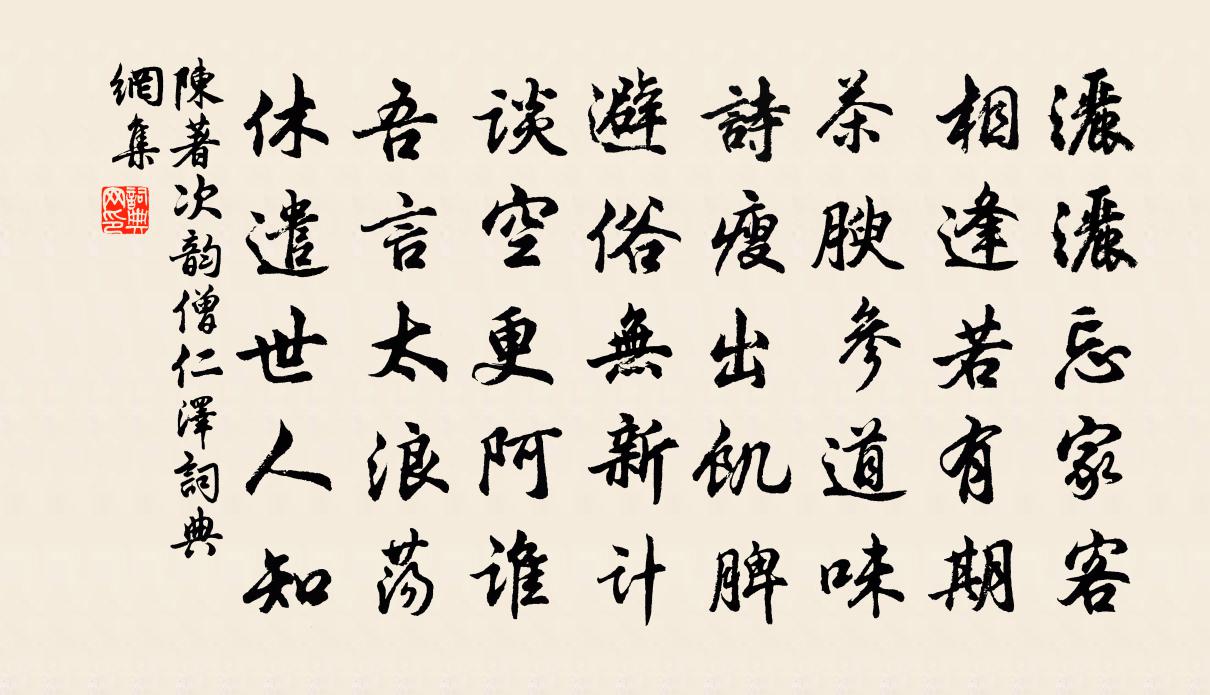 灑灑忘家客
相逢若有期
茶腴參道味
詩瘦出飢脾
避俗無新計
談空更阿誰
吾言太浪蕩
休遣世人知
陳著次韵僧仁澤詞典
網集
詞典網印